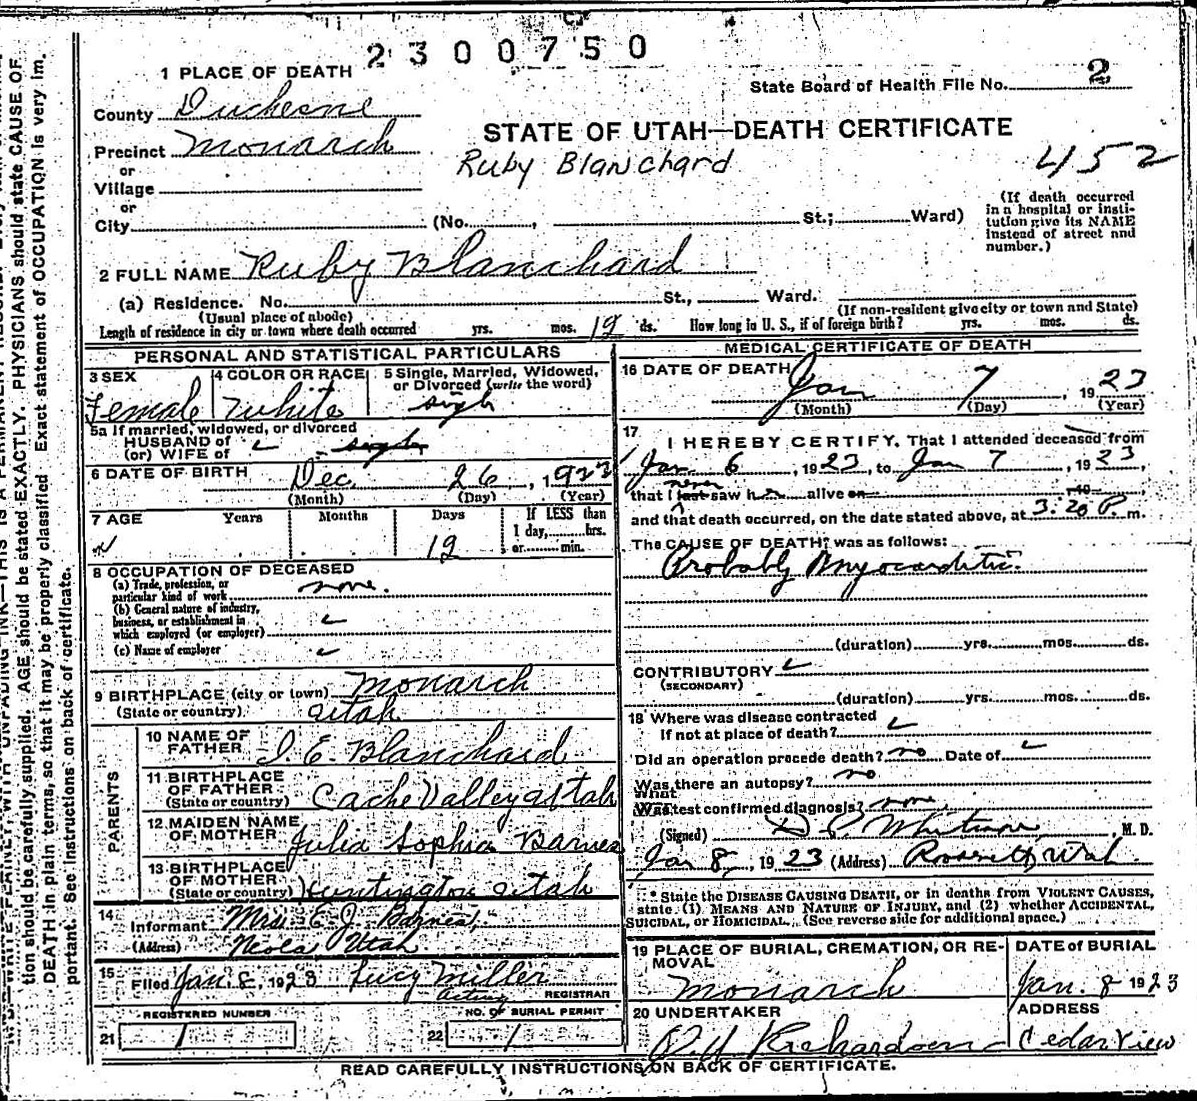 2300750
1 PLACE OF DEATH
State Board of Health File No. 2
County Duchesne
STATE OF UTAH—DEATH CERTIFICATE
Precinct Monarch
Ruby Blanchard
452
or
Village
or
City (No. , St.; Ward)
(If death occurred in a hospital or insti-
tution give its NAME
instead of street and
number.)
2 FULL NAME Ruby Blanchard
(a) Residence. No. St., Ward.
(Usual place of abode)
(If non-resident give city or town and State)
Length of residence in city or town where death occurred yrs. mos. 12 ds. How long in U. S., if of foreign birth? yrs. mos. ds.
PERSONAL AND STATISTICAL PARTICULARS
3 SEX
Female
4 COLOR OR RACE
White
5 Single, Married, Widowed,
or Divorced (write the word)
5a If married, widowed, or divorced
HUSBAND of
(or) WIFE of
6 DATE OF BIRTH Dec 26, 1922
(Month) (Day) (Year)
7 AGE Years Months Days If LESS than
1 day, hrs.
or min.
12
8 OCCUPATION OF DECEASED
(a) Trade, profession, or
particular kind of work none.
(b) General nature of industry,
business, or establishment in
which employed (or employer)
(c) Name of employer
9 BIRTHPLACE (city or town) Monarch
(State or country) Utah
PARENTS
10 NAME OF
FATHER J. E. Blanchard
11 BIRTHPLACE
OF FATHER
(State or country) Cache Valley Utah
12 MAIDEN NAME
OF MOTHER Julia Sophia Barnes
13 BIRTHPLACE
OF MOTHER
(State or country) Huntington Utah
14
Informant Mrs. E. J. Barnes,
(Address) Neola Utah
15
Filed Jan. 8, 1923 Lucy Miller
acting REGISTRAR
REGISTERED NUMBER
21 1
NO. OF BURIAL PERMIT
22 1
MEDICAL CERTIFICATE OF DEATH
16 DATE OF DEATH
Jan 7, 1923
(Month) (Day) (Year)
17
I HEREBY CERTIFY, That I attended deceased from
Jan 6, 1923, to Jan 7, 1923,
never
that I last saw her alive on 19
and that death occurred, on the date stated above, at 3:20 P. m.
The CAUSE OF DEATH* was as follows:
Probably Myocarditis.
(duration) yrs. mos. ds.
CONTRIBUTORY
(SECONDARY)
(duration) yrs. mos. ds.
18 Where was disease contracted
If not at place of death?
Did an operation precede death? no Date of
Was there an autopsy? no
What
Was test confirmed diagnosis? none
(Signed) M. D.
Jan 8, 1923 (Address) Roosevelt, Utah.
* State the DISEASE CAUSING DEATH, or in deaths from VIOLENT CAUSES,
state (1) MEANS AND NATURE OF INJURY, and (2) whether ACCIDENTAL,
SUICIDAL, or HOMICIDAL. (See reverse side for additional space.)
19 PLACE OF BURIAL, CREMATION, OR RE-
MOVAL
Monarch
DATE of BURIAL
Jan. 8 1923
20 UNDERTAKER
Richardson
ADDRESS
Cedarview
READ CAREFULLY INSTRUCTIONS ON BACK OF CERTIFICATE.
tion should be carefully supplied. AGE should be stated EXACTLY. PHYSICIANS should state CAUSE OF
DEATH in plain terms, so that it may be properly classified. Exact statement of OCCUPATION is very im-
portant. See instructions on back of certificate.